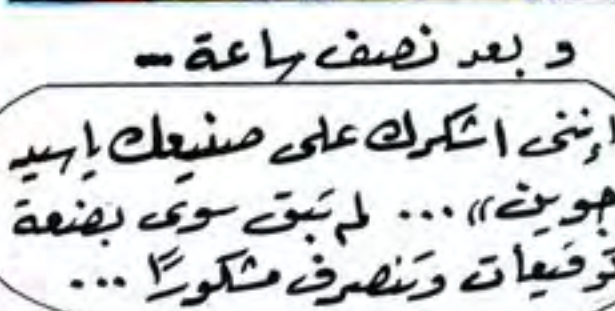 و بعد نصف ساعة --
إننى اشكرك على صنيعك يا سيد
جوين» ... لم تَبق سوى بضعة
توقيعات وتَنصرف مشكورًا ...